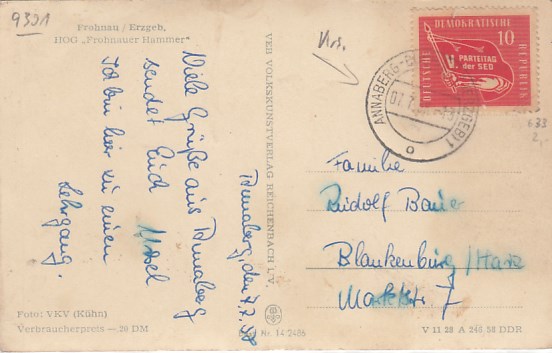 9321
Frohnau / Erzgeb,
HOG „Frohnauer Hammer"
Annaberg, den 7.7.58
Viele Grüße aus Annaberg
sendet Euch
Ursel
Ich bin hier zu einen
Lehrgang.
Foto: VKV (Kühn)
Verbraucherpreis —.20 DM
VEB VOLKSKUNSTVERLAG REICHENBACH I. V.
Nr. 14 2486
DEUTSCHE DEMOKRATISCHE REPUBLIK
10
V. PARTEITAG
der SED
ANNABERG-B
ERZGEB) 1
07.7.
633
2,-
Familie
Rudolf Bauer
Blankenburg/Harz
Marktstr 7
V 11 28 A 246 58 DDR